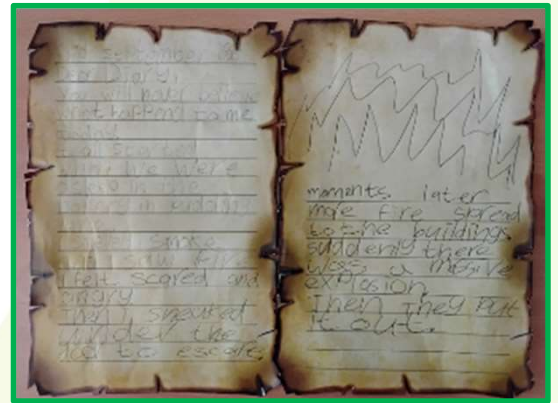 september
Dear Diary,
You will never believe
what happened to me
today
It all started
when we were
asleep in
smoke
I saw fire
I felt scared and
angry
Then I sneaked
under the
to escape.
moments later
more fire spread
to the buildings
suddenly there
was a masive
explosion
Then They put
it out.